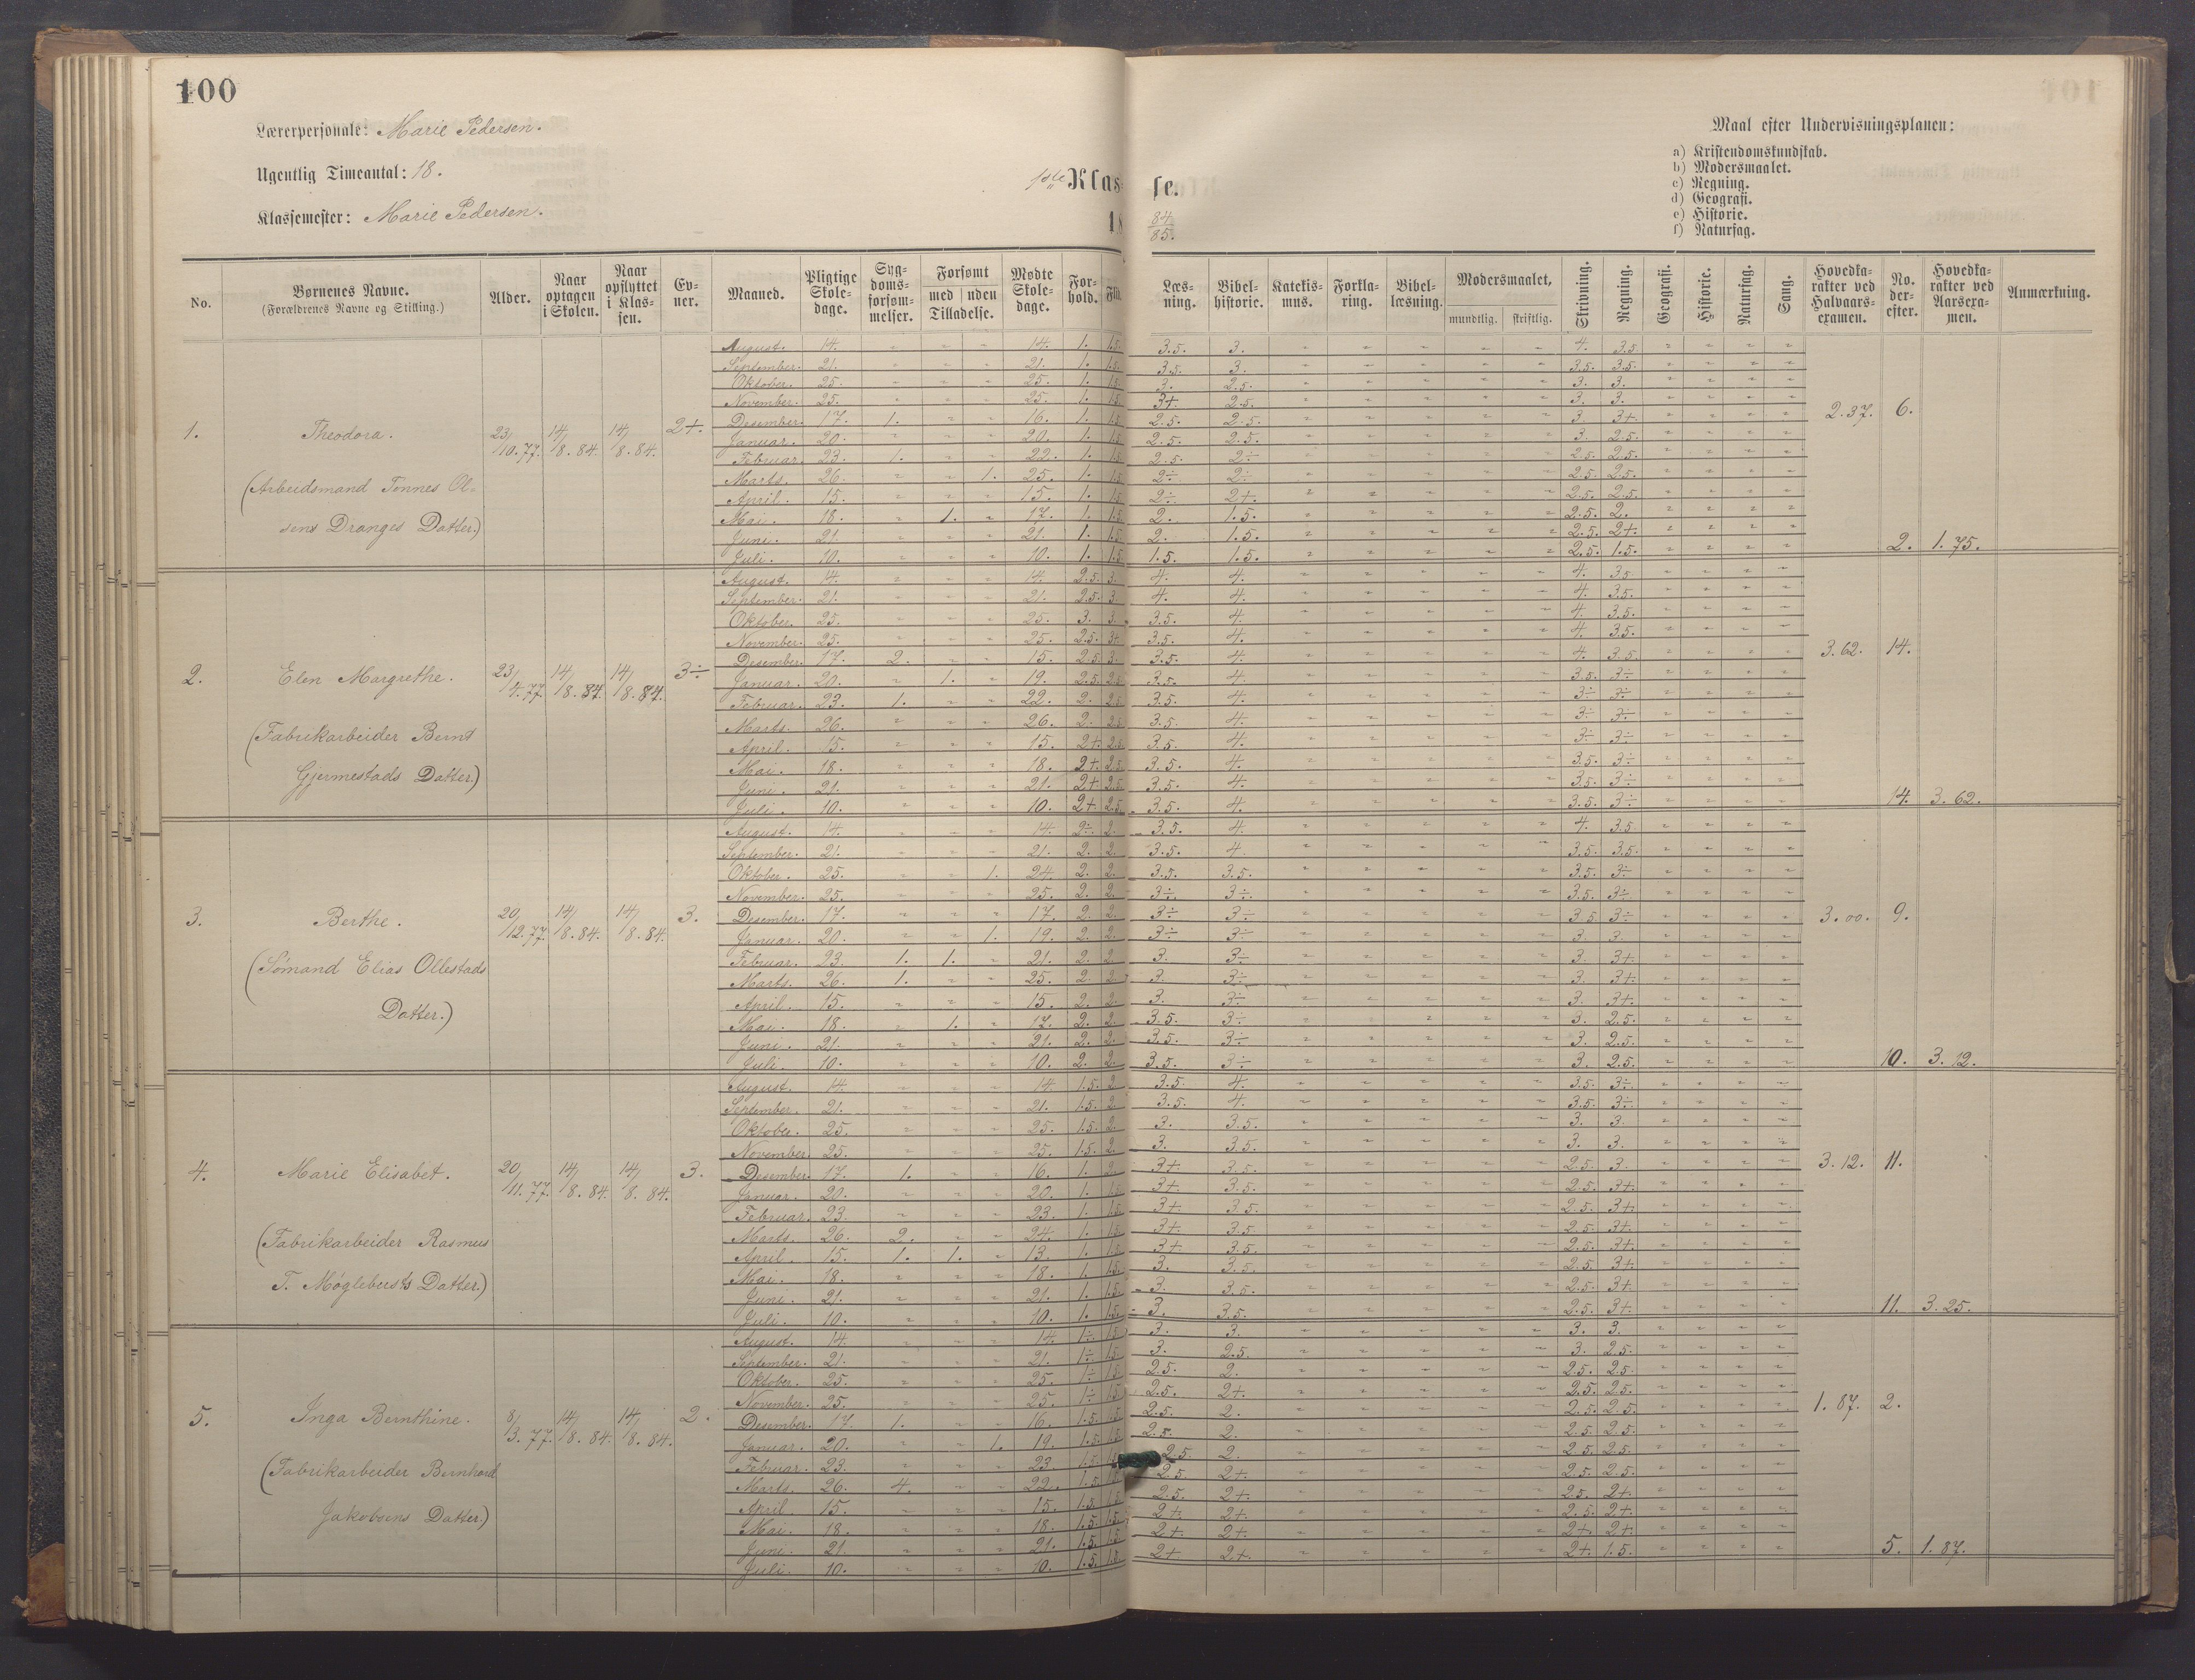 100
Lærerpersonale: Marie Pedersen.
Ugentlig Timeantal: 18.
Klassemester: Marie Pedersen.
1ste Klasse.
18 84/85.
Maal efter Undervisningsplanen:
a) Kristendomskundskab.
b) Modersmaalet.
c) Regning.
d) Geografi.
e) Historie.
f) Naturfag.
No. | Børnenes Navne. (Forældrenes Navne og Stilling.) | Alder. | Naar optagen i Skolen. | Naar opflyttet i Klassen. | Evner. | Maaned. | Pligtige Skoledage. | Sygdomsforsømmelser. | Forsømt med Tilladelse. | uden | Mødte Skoledage. | Forhold. | Flid. | Læsning. | Bibelhistorie. | Katekismus. | Forklaring. | Bibellæsning. | Modersmaalet, mundtlig. | skriftlig. | Skrivning. | Regning. | Geografi. | Historie. | Naturfag. | Sang. | Hovedkarakter ved Halvaarsexamen. | No. derefter. | Hovedkarakter ved Aarsexamen. | Anmærkning.
1. Theodora. 23/10.77. 14/8.84. 14/8.84. 2+. 2.37. 6.
(Arbeidsmand Tønnes Olsens Dranges Datter.)
August. 14. " " " 14. 1. 1.5. 3.5. 3. " " " " " 4. 3.5. " " " "
September. 21. " " " 21. 1. 1.5. 3.5. 3. " " " " " 3.5. 3.5. " " " "
Oktober. 25. " " " 25. 1. 1.5. 3. 2.5. " " " " " 3. 3. " " " "
November. 25. " " " 25. 1. 1.5. 3+. 2.5. " " " " " 3. 3. " " " "
Desember. 17. 1. " " 16. 1. 1.5. 2.5. 2.5. " " " " " 3. 3+. " " " "
Januar. 20. " " " 20. 1. 1.5. 2.5. 2.5. " " " " " 3. 2.5. " " " "
Februar. 23. 1. " " 22. 1. 1.5. 2.5. 2÷ " " " " " 2.5. 2.5. " " " "
Marts. 26. " " 1. 25. 1. 1.5. 2÷ 2÷ " " " " " 2.5. 2.5. " " " "
April. 15. " " " 15. 1. 1.5. 2÷ 2+. " " " " " 2.5. 2.5. " " " "
Mai. 18. " 1. " 17. 1. 1.5. 2. 1.5. " " " " " 2.5. 2. " " " "
Juni. 21. " " " 21. 1. 1.5. 2. 1.5. " " " " " 2.5. 2+ " " " "
Juli. 10. " " " 10. 1. 1.5. 1.5. 1.5. " " " " " 2.5. 1.5. " " " " 2. 1.75.
2. Elen Margrethe. 23/4.77. 14/8.84. 14/8.84. 3÷ 3.62. 14.
(Fabrikarbeider Bernt Gjermestads Datter.)
August. 14. " " " 14. 2.5. 3. 4. 4. " " " " " 4. 3.5. " " " "
September. 21. " " " 21. 2.5. 3. 4. 4. " " " " " 4. 3.5. " " " "
Oktober. 25. " " " 25. 3. 3. 3.5. 4. " " " " " 4. 3.5. " " " "
November. 25. " " " 25. 2.5. 3+. 3.5. 4. " " " " " 4. 3.5. " " " "
Desember. 17. 2. " " 15. 2.5. 3. 3.5. 4. " " " " " 4. 3.5. " " " "
Januar. 20. " 1. " 19. 2.5. 2.5. 3.5. 4. " " " " " 3.5. 3÷ " " " "
Februar. 23. 1. " " 22. 2. 2.5. 3.5. 4. " " " " " 3÷ 3÷ " " " "
Marts. 26. " " " 26. 2. 2.5. 3.5. 4. " " " " " 3÷ 3÷ " " " "
April. 15. " " " 15. 2+. 2.5. 3.5. 4. " " " " " 3÷ 3÷ " " " "
Mai. 18. " " " 18. 2+. 2.5. 3.5. 4. " " " " " 3.5. 3÷ " " " "
Juni. 21. " " " 21. 2+ 2.5. 3.5. 4. " " " " " 3.5. 3÷ " " " "
Juli. 10. " " " 10. 2+. 2.5. 3.5. 4. " " " " " 3.5. 3÷ " " " " 14. 3.62.
3. Berthe. 20/12.77. 14/8.84. 14/8.84. 3. 3.00. 9.
(Sømand Elias Ollestads Datter.)
August. 14. " " " 14. 2÷. 2. 3.5. 4. " " " " " 4. 3.5. " " " "
September. 21. " " " 21. 2. 2. 3.5. 4. " " " " " 3.5. 3.5. " " " "
Oktober. 25. " " 1. 24. 2. 2. 3.5. 3.5. " " " " " 3.5. 3÷ " " " "
November. 25. " " " 25. 2. 2. 3÷. 3÷. " " " " " 3.5. 3÷. " " " "
Desember. 17. " " " 17. 2. 2. 3÷ 3÷ " " " " " 3.5. 3÷ " " " "
Januar. 20. " " 1. 19. 2. 2. 3÷ 3÷ " " " " " 3. 3. " " " "
Februar. 23. 1. 1. " 21. 2. 2. 3. 3÷ " " " " " 3. 3+. " " " "
Marts. 26. 1. " " 25. 2. 2. 3. 3÷ " " " " " 3. 3+. " " " "
April. 15. " " " 15. 2. 2. 3. 3÷ " " " " " 3. 3+. " " " "
Mai. 18. " 1. " 17. 2. 2. 3.5. 3÷ " " " " " 3. 2.5. " " " "
Juni. 21. " " " 21. 2. 2. 3.5. 3÷ " " " " " 3. 2.5. " " " "
Juli. 10. " " " 10. 2. 2. 3.5. 3÷ " " " " " 3. 2.5. " " " " 10. 3.12.
4. Marie Elisabet. 20/11.77. 14/8.84. 14/8.84. 3. 3.12. 11.
(Fabrikarbeider Rasmus T. Møglebersts Datter.)
August. 14. " " " 14. 1.5. 2. 3.5. 4. " " " " " 3.5. 3÷. " " " "
September. 21. " " " 21. 1.5. 2. 3.5. 4. " " " " " 3.5. 3÷. " " " "
Oktober. 25. " " " 25. 1.5. 2. 3. 3.5. " " " " " 3. 3. " " " "
November. 25. " " " 25. 1.5. 2. 3. 3.5. " " " " " 3. 3. " " " "
Desember. 17. 1. " " 16. 1. 2. 3+. 3.5. " " " " " 2.5. 3. " " " "
Januar. 20. " " " 20. 1. 1.5. 3+. 3.5. " " " " " 2.5. 3+. " " " "
Februar. 23. " " " 23. 1. 1.5. 3+. 3.5. " " " " " 2.5. 3+. " " " "
Marts. 26. 2. " " 24. 1. 1.5. 3+. 3.5. " " " " " 2.5. 3+. " " " "
April. 15. 1. 1. " 13. 1. 1.5. 3+. 3.5. " " " " " 2.5. 3+. " " " "
Mai. 18. " " " 18. 1. 1.5. 3. 3.5. " " " " " 2.5. 3+. " " " "
Juni. 21. " " " 21. 1. 1.5. 3. 3.5. " " " " " 2.5. 3+. " " " "
Juli. 10. " " " 10. 1. 1.5. 3. 3.5. " " " " " 2.5. 3+. " " " " 11. 3.25.
5. Inga Bernthine. 8/3.77. 14/8.84. 14/8.84. 2. 1.87. 2.
(Fabrikarbeider Bernhard Jakobsens Datter.)
August. 14. " " " 14. 1÷. 1.5. 3. 3. " " " " " 3. 3. " " " "
September. 21. " " " 21. 1÷ 1.5. 3. 2.5. " " " " " 3. 2.5. " " " "
Oktober. 25. " " " 25. 1÷ 1.5. 2.5. 2. " " " " " 2.5. 2.5. " " " "
November. 25. " " " 25. 1÷ 1.5. 2.5. 2+. " " " " " 2.5. 2.5. " " " "
Desember. 17. 1. " " 16. 1.5. 1.5. 2.5. 2. " " " " " 2.5. 2.5. " " " "
Januar. 20. " " 1. 19. 1.5. 1.5. 2.5. 2. " " " " " 2.5. 2.5. " " " "
Februar. 23. " " " 23. 1.5. 2.5. 2. " " " " " 2.5. 2.5. " " " "
Marts. 26. 4. " " 22. 1.5. 1.5. 2.5. 2+. " " " " " 2.5. 2.5. " " " "
April. 15. " " " 15. 1.5. 1.5. 2.5. 2+. " " " " " 2.5. 2+. " " " "
Mai. 18. " " " 18. 1.5. 1.5. 2+. 2+. " " " " " 2.5. 2+. " " " "
Juni. 21. " " " 21. 1.5. 1.5. 2+. 2+. " " " " " 2+. 2+. " " " "
Juli. 10. " " " 10. 1.5. 1.5. 2+ 2+. " " " " " 2+. 1.5. " " " " 5. 1.87.